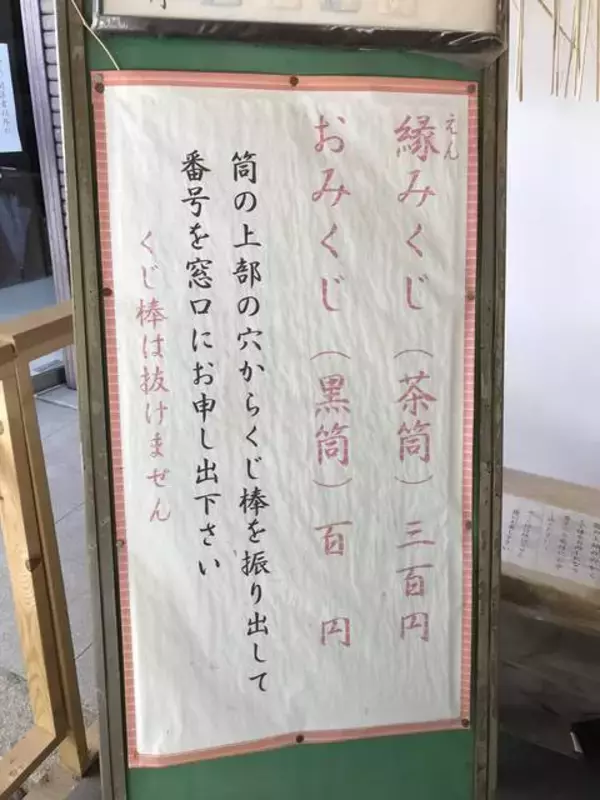 縁みくじ（茶筒）三百円
えん
おみくじ（黒筒）百 円
筒の上部の穴からくじ棒を振り出して
番号を窓口にお申し出下さい
くじ棒は抜けません